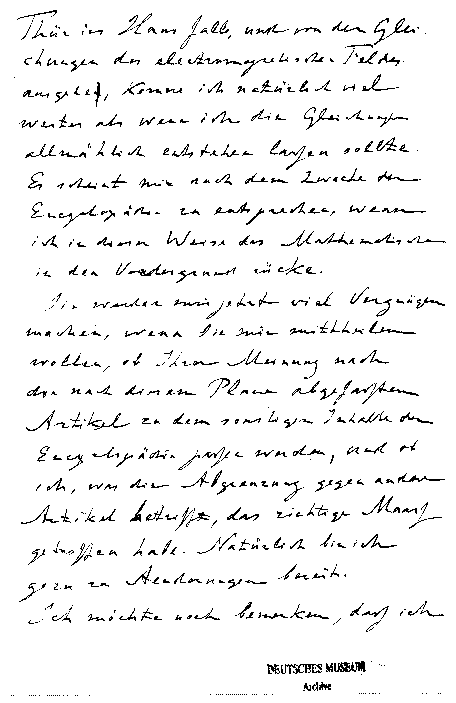 Thür ins Haus falle, und von den Glei-
chungen des electromagnetischen Feldes
ausgehe, komme ich natürlich viel
weiter als wenn ich die Gleichungen
allmählich entstehen lassen sollte.
Es scheint mir auch dem Zwecke der
Encyclopädie zu entsprechen, wenn
ich in dieser Weise das Mathematische
in den Vordergrund rücke.
Sie werden mir jetzt viel Vergnügen
machen, wenn Sie mir mittheilen
wollen, ob Ihrer Meinung nach
der nach diesem Plane abgefasste
Artikel zu dem sonstigen Inhalte der
Encyclopädie passen werde, und ob
ich, was die Abgrenzung gegen andere
Artikel betrifft, das richtige Maass
getroffen habe. Natürlich bin ich
gern zu Aenderungen bereit.
Ich möchte noch bemerken, dass ich
DEUTSCHES MUSEUM
Archive